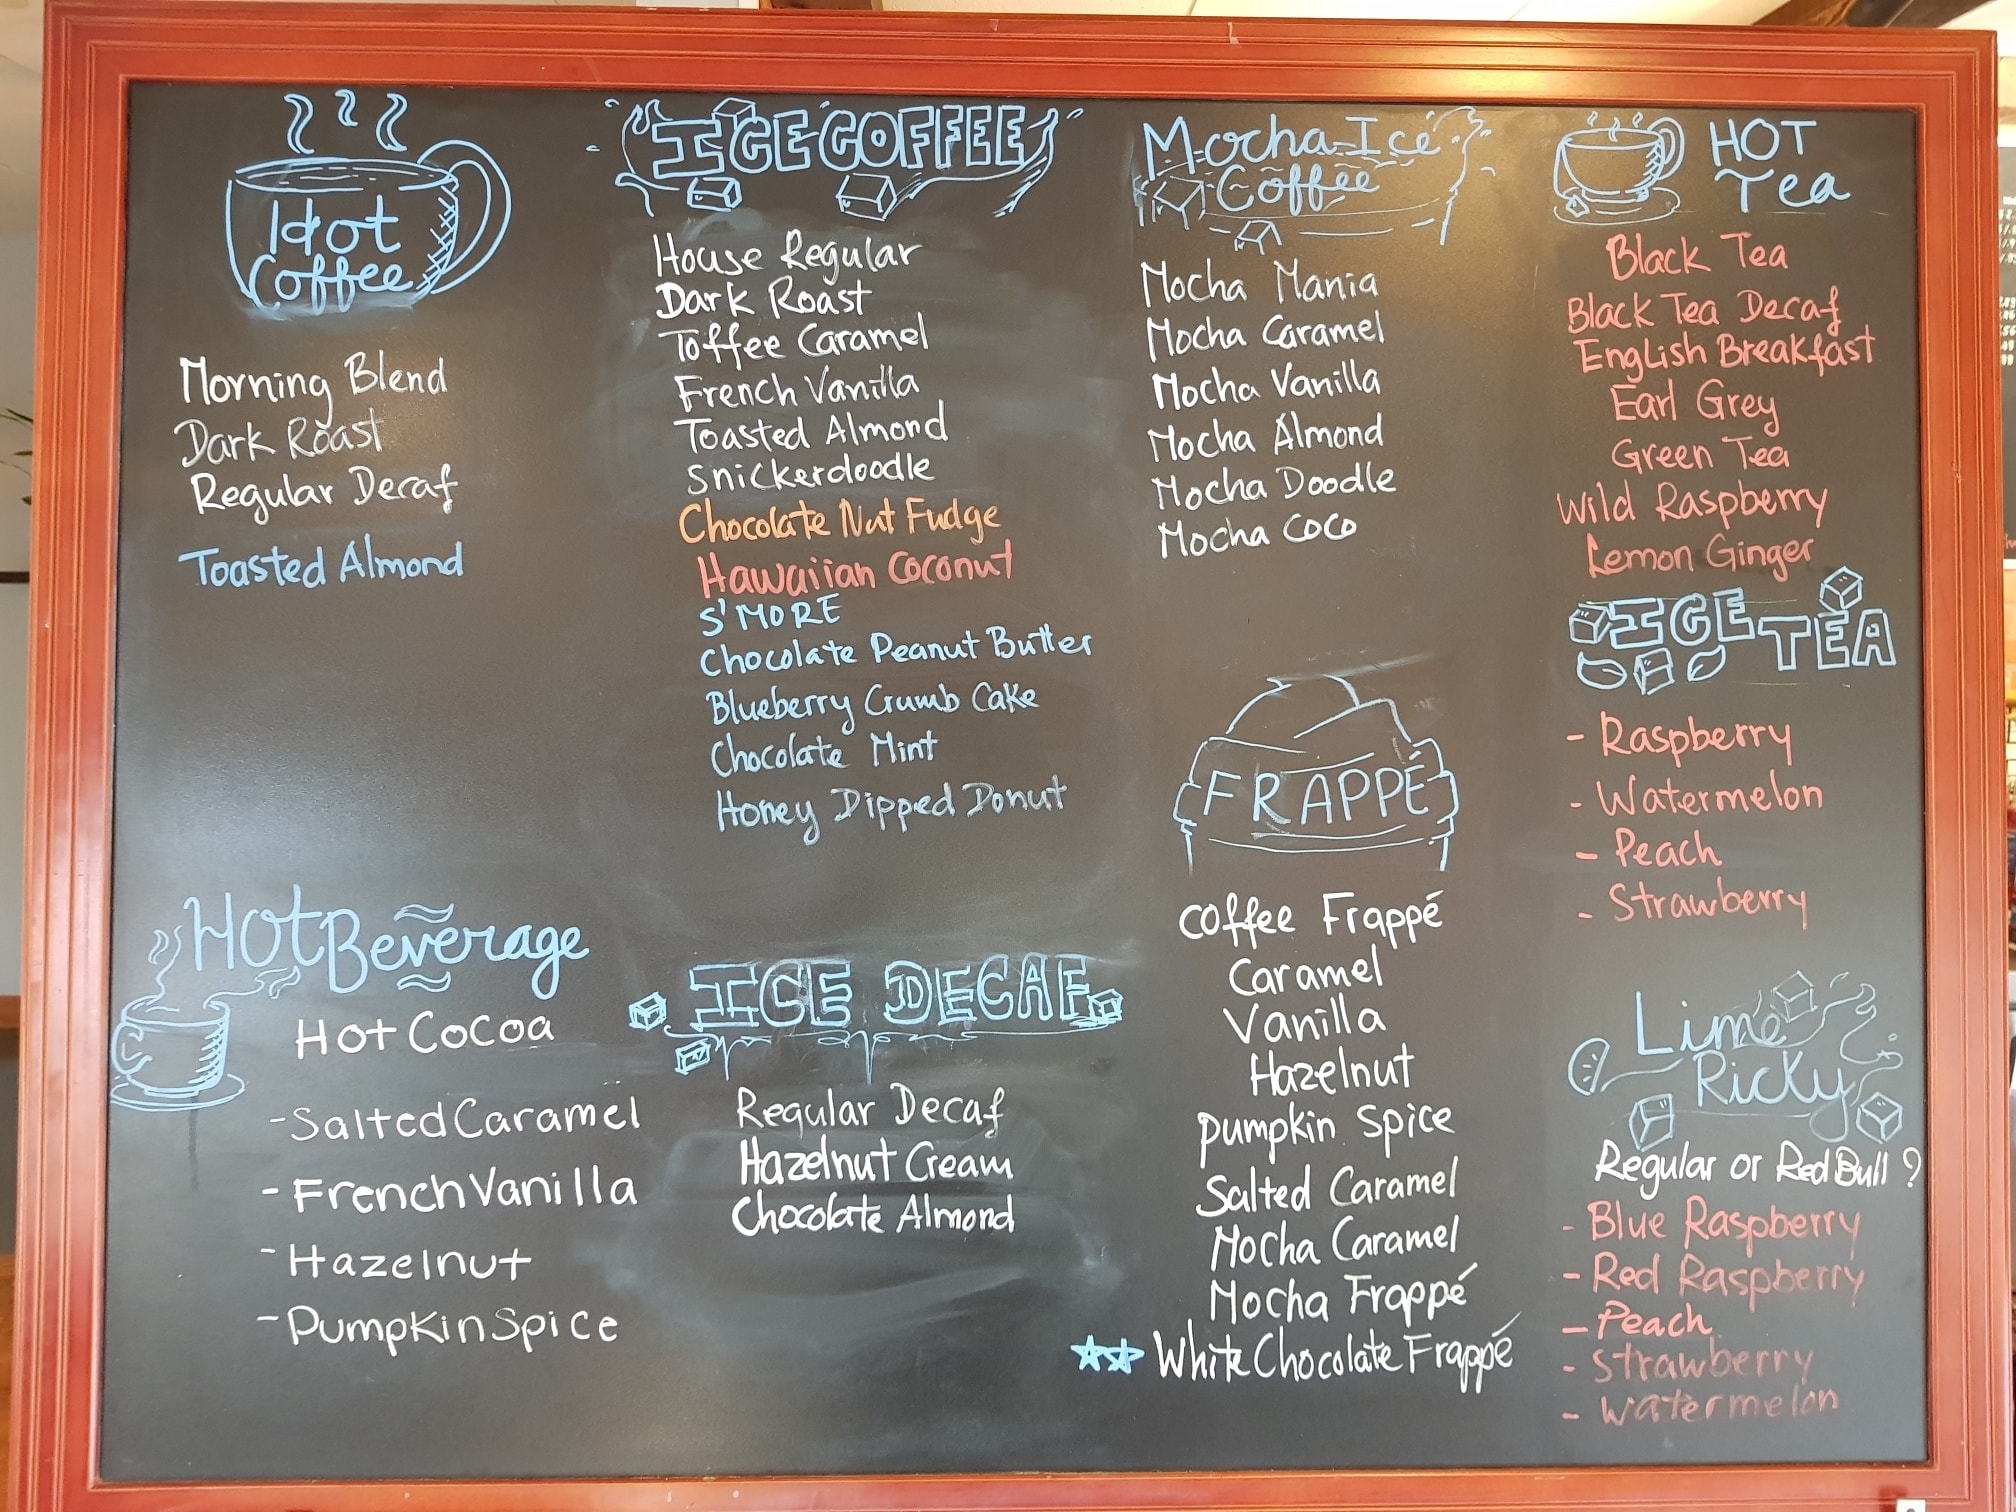 Hot
Coffee
Morning Blend
Dark Roast
Regular Decaf
Toasted Almond
Hot Beverage
Hot Cocoa
- Salted Caramel
- French Vanilla
- Hazelnut
- Pumpkin Spice
ICE COFFEE
House Regular
Dark Roast
Toffee Caramel
French Vanilla
Toasted Almond
Snickerdoodle
Chocolate Nut Fudge
Hawaiian Coconut
S'MORE
Chocolate Peanut Butter
Blueberry Crumb Cake
Chocolate Mint
Honey Dipped Donut
ICE DECAF
Regular Decaf
Hazelnut Cream
Chocolate Almond
Mocha Ice
Coffee
Mocha Mania
Mocha Caramel
Mocha Vanilla
Mocha Almond
Mocha Doodle
Mocha Coco
FRAPPÉ
Coffee Frappé
Caramel
Vanilla
Hazelnut
Pumpkin Spice
Salted Caramel
Mocha Caramel
Mocha Frappé
White Chocolate Frappé
HOT
Tea
Black Tea
Black Tea Decaf
English Breakfast
Earl Grey
Green Tea
Wild Raspberry
Lemon Ginger
ICE TEA
- Raspberry
- Watermelon
- Peach
- Strawberry
Lime
Ricky
Regular or Red Bull?
- Blue Raspberry
- Red Raspberry
- Peach
- Strawberry
- Watermelon